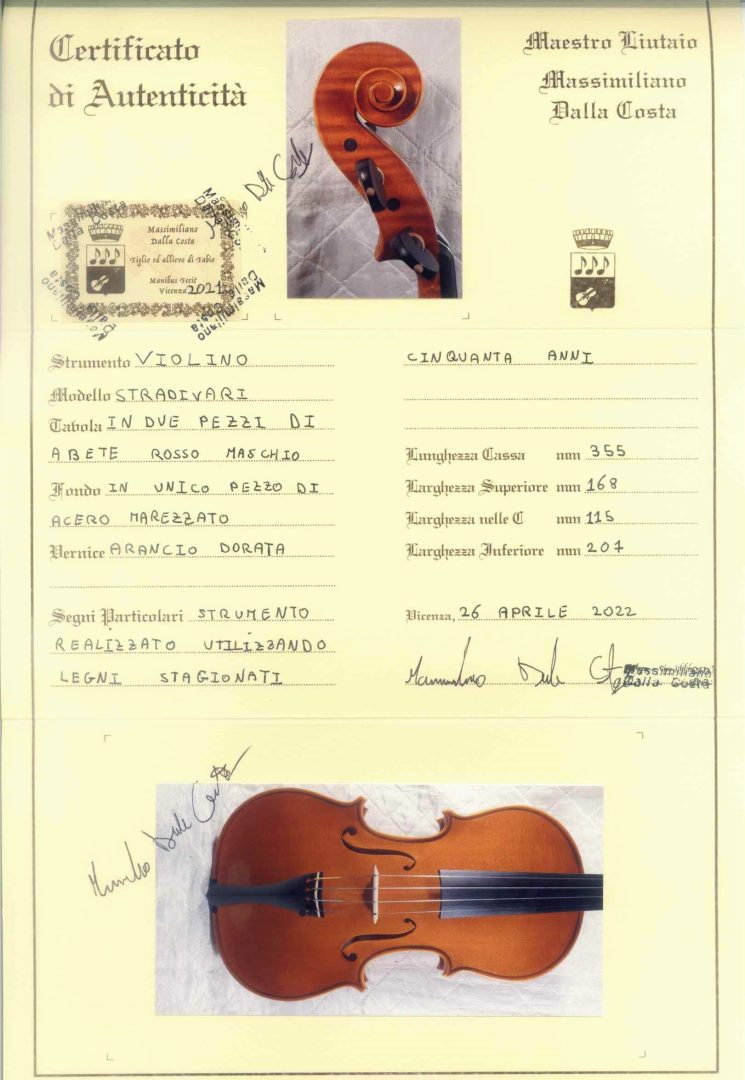 Certificato
di Autenticità
Maestro Liutaio
Massimiliano
Dalla Costa
Massimiliano
Dalla Costa
Figlio ed allievo di Fabio
Manibus Fecit
Vicenza 2021
Strumento VIOLINO
Modello STRADIVARI
Tavola IN DUE PEZZI DI
ABETE ROSSO MASCHIO
Fondo IN UNICO PEZZO DI
ACERO MAREZZATO
Vernice ARANCIO DORATA
Segni Particolari STRUMENTO
REALIZZATO UTILIZZANDO
LEGNI STAGIONATI
CINQUANTA ANNI
Lunghezza Cassa mm 355
Larghezza Superiore mm 168
Larghezza nelle C mm 115
Larghezza Inferiore mm 207
Vicenza, 26 APRILE 2022
Massimiliano
Dalla Costa